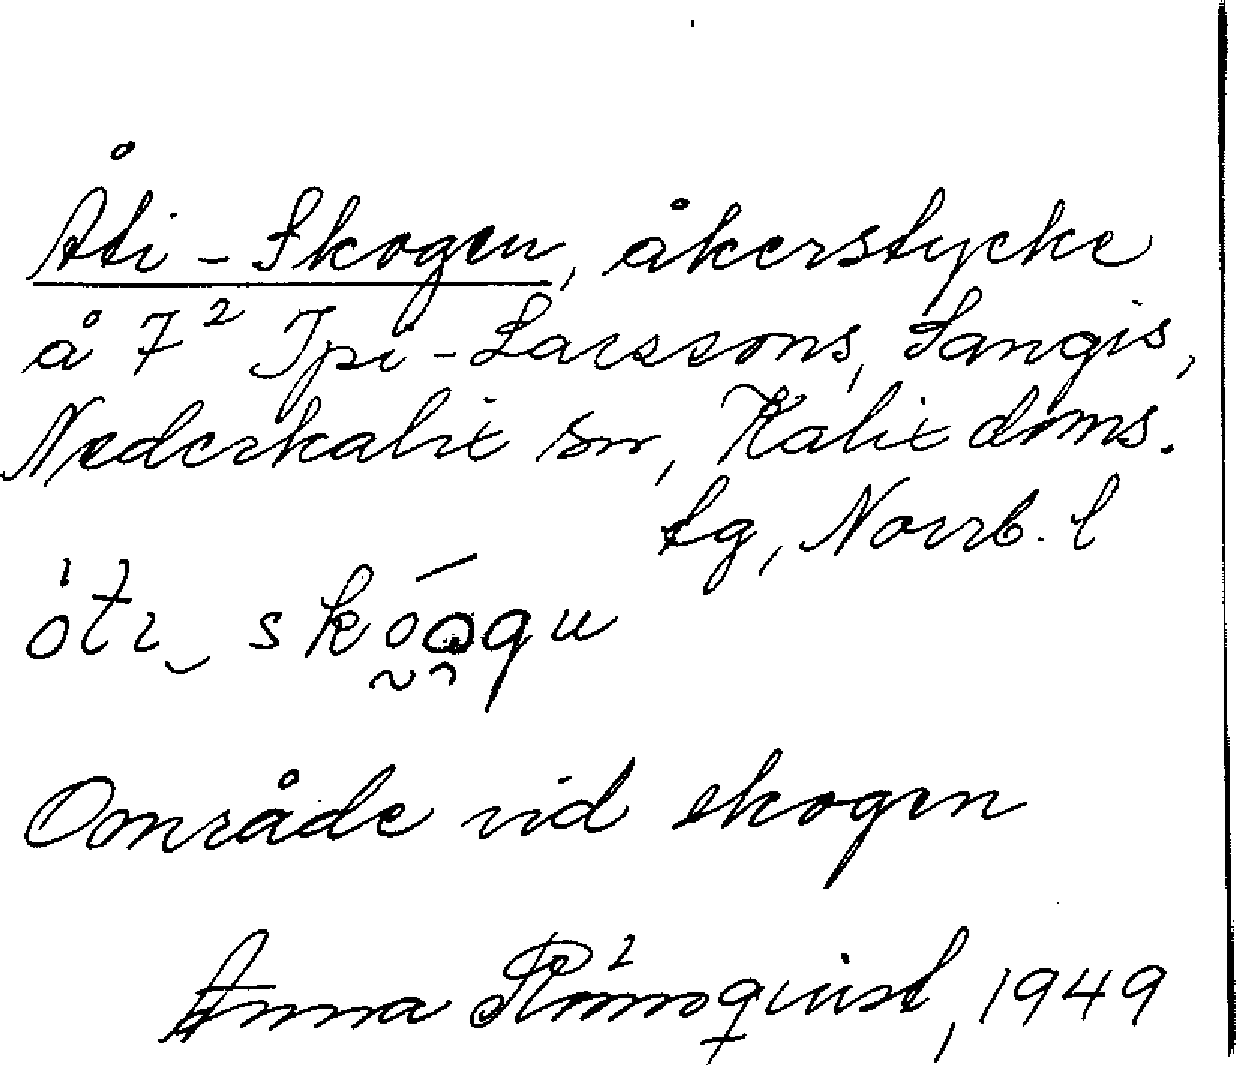 Åti-Skogen, åkerstycke
å 7² Ipi-Larssons, Sangis,
Nederkalix sn, Kalix doms.
tg, Norrb. l
Område vid skogen
Anna Römqvist, 1949